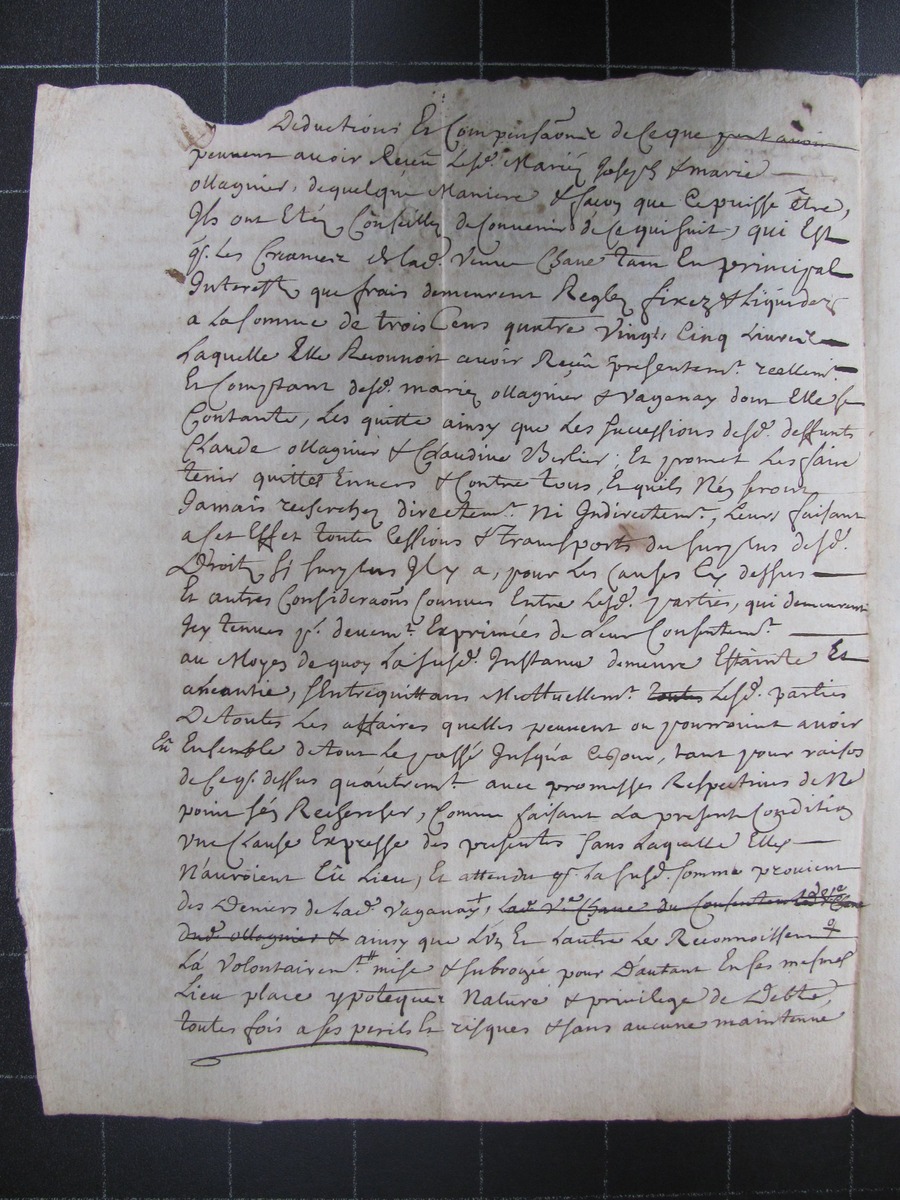 Deductions Et Compensaōns de Ce que peut avoir
peuvent avoir Receu Lesd. Mariéz Joseph & marie
ollagnier, de quelque Maniere & façon que Ce puisse être,
Ils ont Etéz Conseilléz de Convenir de Ce qui suit, qui Est
q. les Creances de lad. veuve Chave tant En principal
Interest que frais demeurent Regléz fixez & Liquidez
a La somme de trois Cens quatre vingt Cinq Livres
Laquelle Elle Reconnoit avoir Receu presentemt. reellemt.
Et Comptant desd. mariéz ollagnier & vaganay dont Elle se
Contante, Les quitte ainsy que Les successions desd. deffunts
Claude ollagnier & Claudine Berlier, Et promet Les faire
tenir quittes Envers & Contre tous, Et quils Néy seront
Jamais recherchez directemt. Ni Indirectemt., Leurs faisant
a Cet Effet toutes Cessions & transports du surplus desd.
Droits si surplus Il y a, pour Les Causes Cy dessus
Et autres Consideraōns Connues Entre Lesd. parties, qui demeurent
Icy tenues pr. devemt. Exprimées de Leur Consentemt.
au Moyen de quoy La susd. Instance demeure Estainte Et
aneantie, s'Entrequittans Muttuellemt. toutes Lesd. parties
De toutes Les affaires quelles peuvent ou pourroient avoir
Eu Ensemble de tout Le passé Jusqu'a Ce Jour, tant pour raison
de Ce q. dessus qu'autremt. avec promesses Respectives de Ne
point s'én Rechercher, Comme faisant La present Condition
une Clause Expresse des presentes sans Laquelle Elles
N'auroient Eü Lieu, Et attendu q. La susd. somme provient
des Deniers de lad. vaganay†, Lad. Ve. Chave du Consentemt.
dud. ollagnier & ainsy que L'un Et L'autre Le Reconnoissent
La volontairemt. # mise & subrogée pour D'autant En ses mesmes
Lieu place ypoteques Nature & privilege de Debte,
toutes fois a ses perils Et risques & sans aucune maintenue